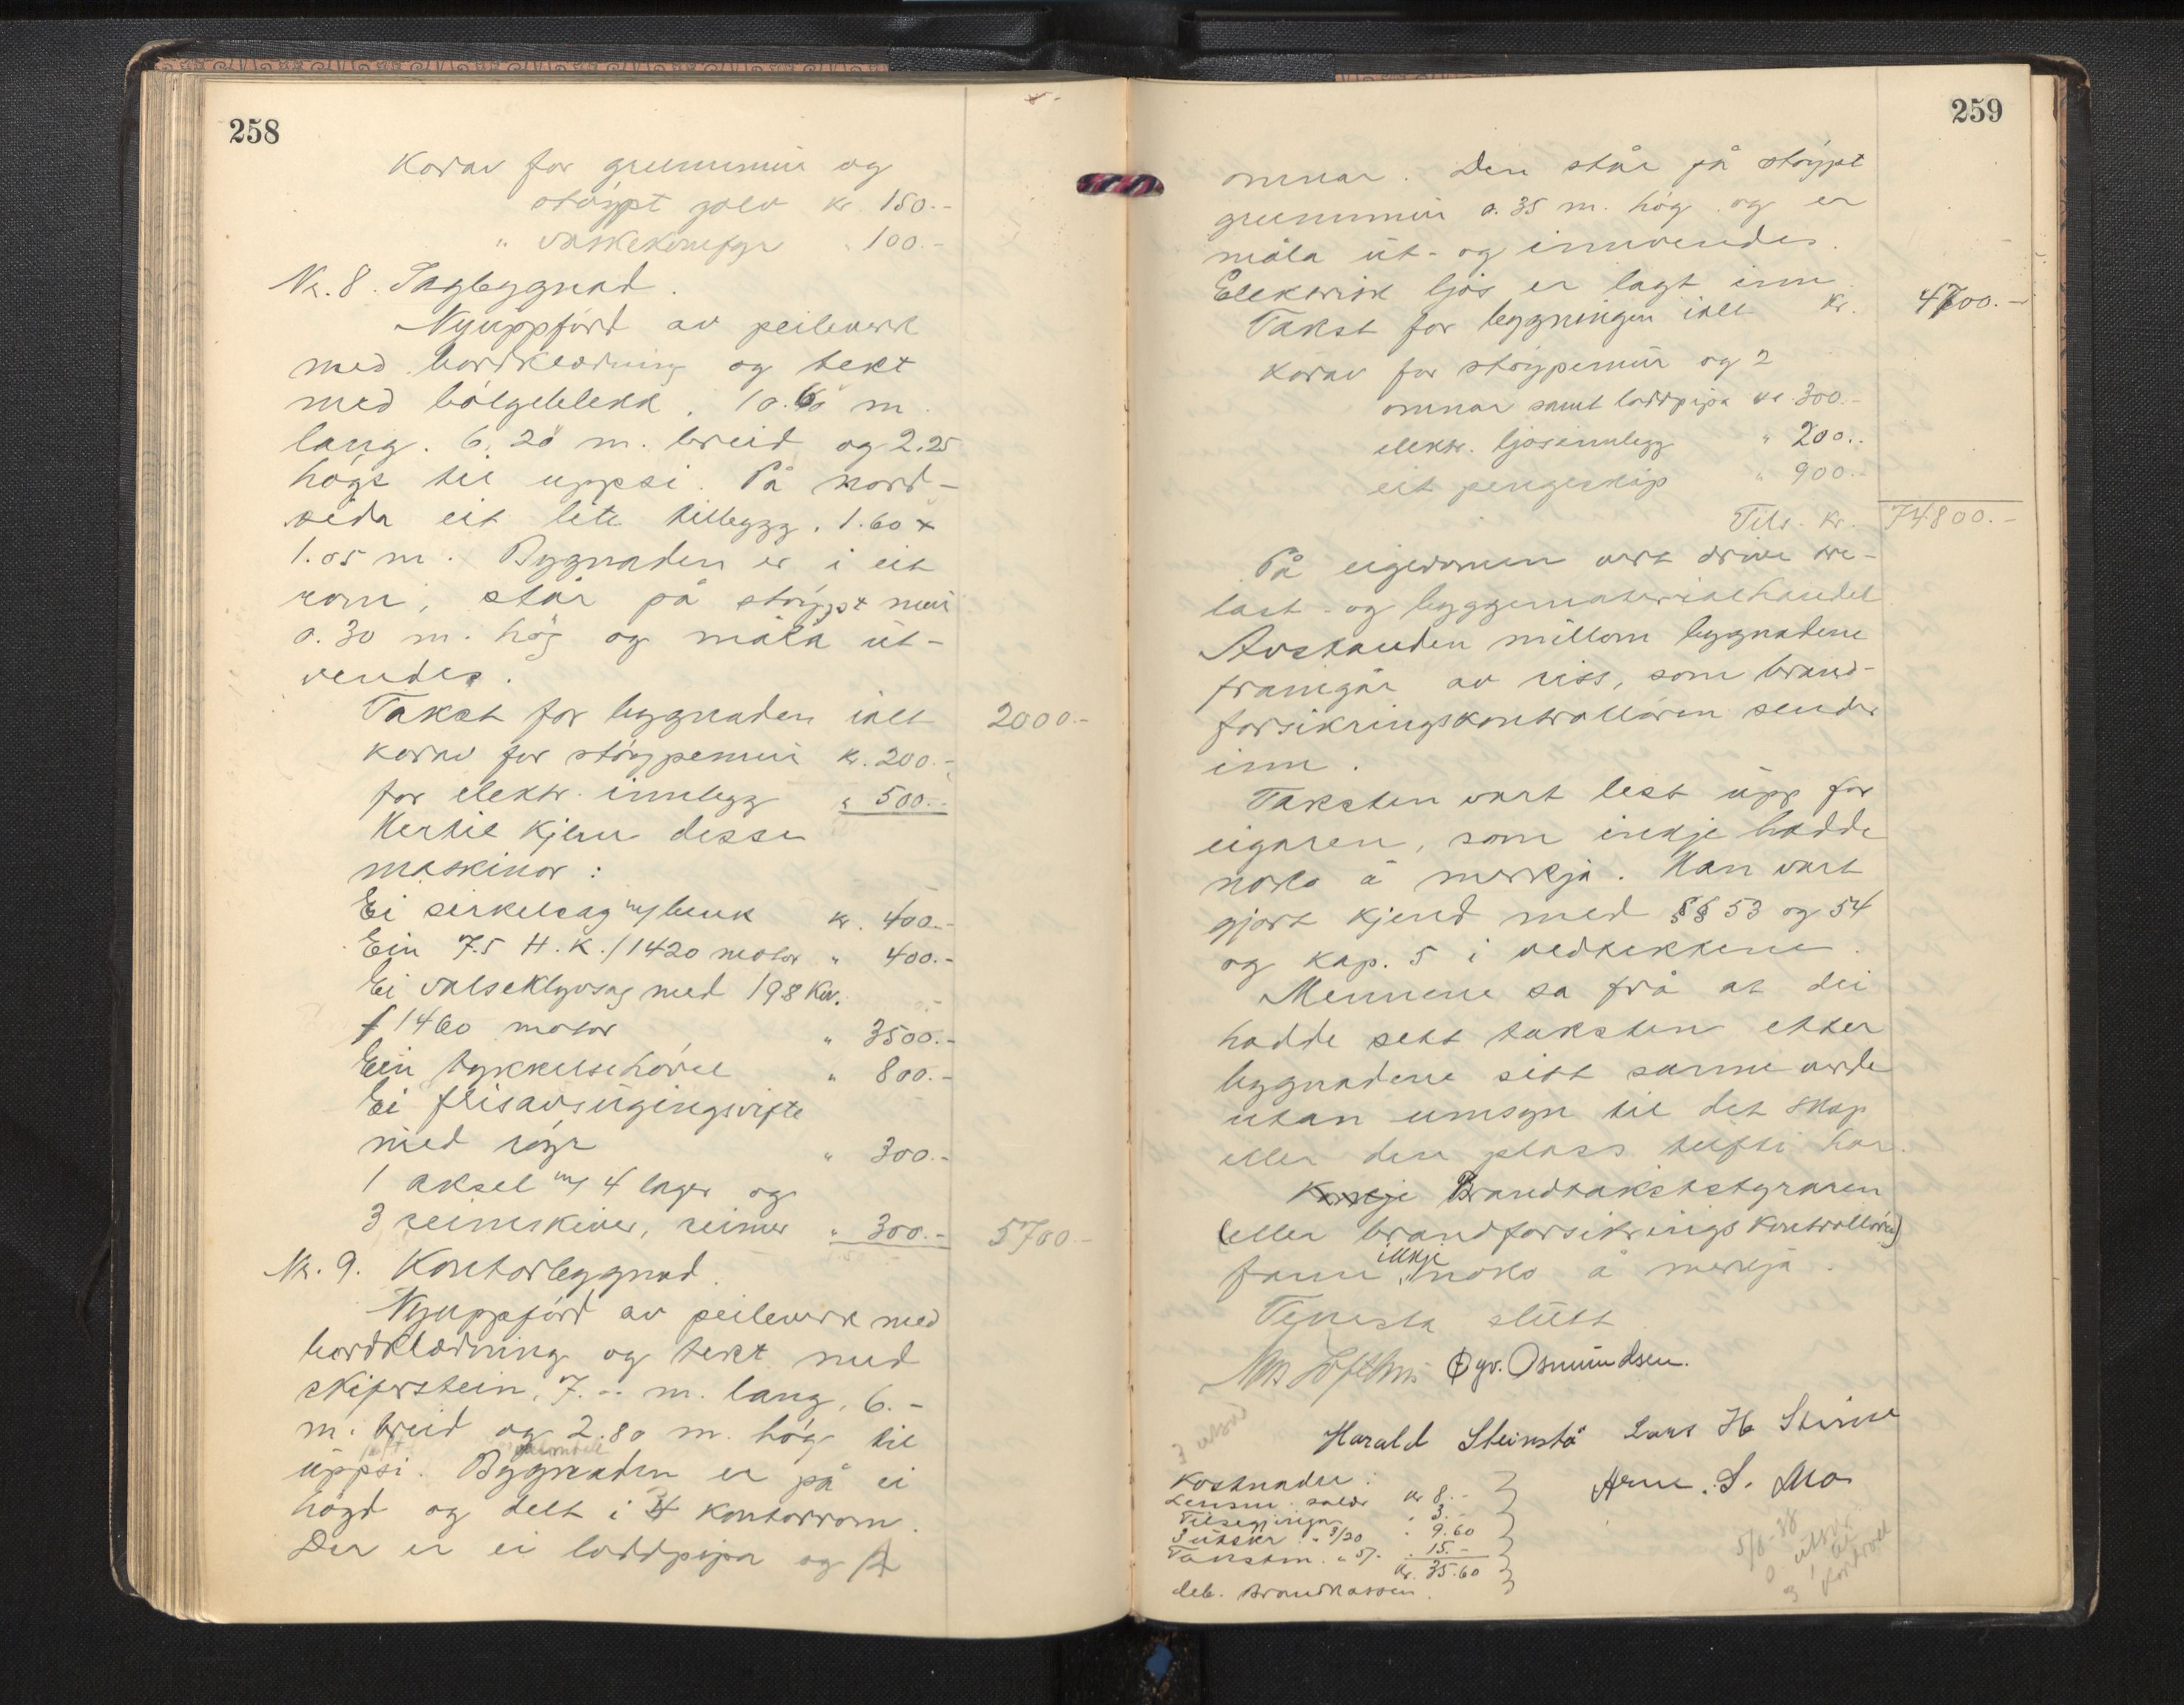 258
Korav for grunnmur og
støypt golv kr. 150.-
" vaskekomfyr " 100.-
Nr. 8. Sagbygnad.
Nyuppførd av peileverk
med bordklædning og tekt
med bølgeblekk. 10.60 m.
lang. 6.20 m. breid og 2.25
høgt til uppsi. På nord-
sida eit lite tillbygg. 1.60 x
1.05 m. Bygnaden er i eit
rom, står på støypt mur
0.30 m. høg og måla ut-
vendes.
Takst for bygnaden ialt 2000.-
korav for støypemur kr. 200.-
for elektr. innlegg " 500.-
Hertil kjem desse
maskinor:
Ei sirkelsag m/ benk kr. 400.-
Ein 7.5 H.K./1420 motor " 400.-
Ei valseklyvsag med 198 Kw.
/1460 motor " 3500.-
Ein tykkelsehøvel " 800.-
Ei flisavsugingsvifte
med røyr " 300.-
1 aksel m/ 4 lager og
3 reimskiver, reimer " 300.- 5700.-
Nr. 9. Kontorbygnad.
Nyuppførd av peileverk med
bordklædning og tekt med
skiferstein, 7.-- m. lang, 6.-
m. breid og 2.80 m. høg til
uppsi. Bygnaden er på ei
høgd og delt i 3 kontorrom.
Der er ei loddpipa og 2
259
omnar. Den står på støypt
grunnmur 0.35 m. høg og er
måla ut- og innvendes.
Elektrisk ljos er lagt inn.
Takst for bygningen ialt kr. 4700.-
Korav for støypemur og 2
omnar samt loddpipa kr. 300.-
elektr. ljosinnlegg " 200.-
eit pengeskåp " 900.-
Tils. kr. 74800.-
På eigedomen vert drive tre-
last- og byggematerialhandel
Avstanden millom bygnadene
framgår av riss, som brand-
forsikringskontrolløren sender
inn.
Taksten vart lest upp for
eigaren, som inkje hadde
noko å merkja. Han vart
gjort kjend med §§ 53 og 54
og kap. 5 i vedtektene.
Mennene sa frå at dei
hadde sett taksten etter
bygnadene sitt sanne verde
utan umsyn til det skap
eller den plass tufti har.
Korkje Brandtakststyraren
(eller brandforsikringskontrolløren)
fann ikkje noko å merkja.
Tenesta slutt
Øyv. Osmundsen.
Harald Steinstø Lars H Steine
Arne. S. Mo
Kostnader:
Lensm. salær kr 8.-
Tilsegjingar " 3.-
3 utskr. " 3/20 " 9.60
Takstm. " 5/- " 15.-
kr. 35.60
deb. Brandkassen.
5/8-38